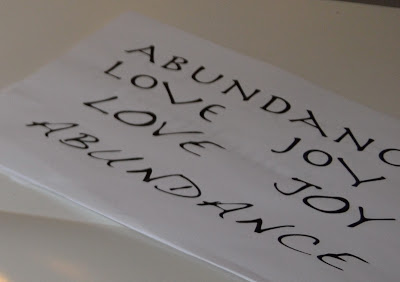 ABUNDANC
LOVE JOY
LOVE JOY
ABUNDANCE